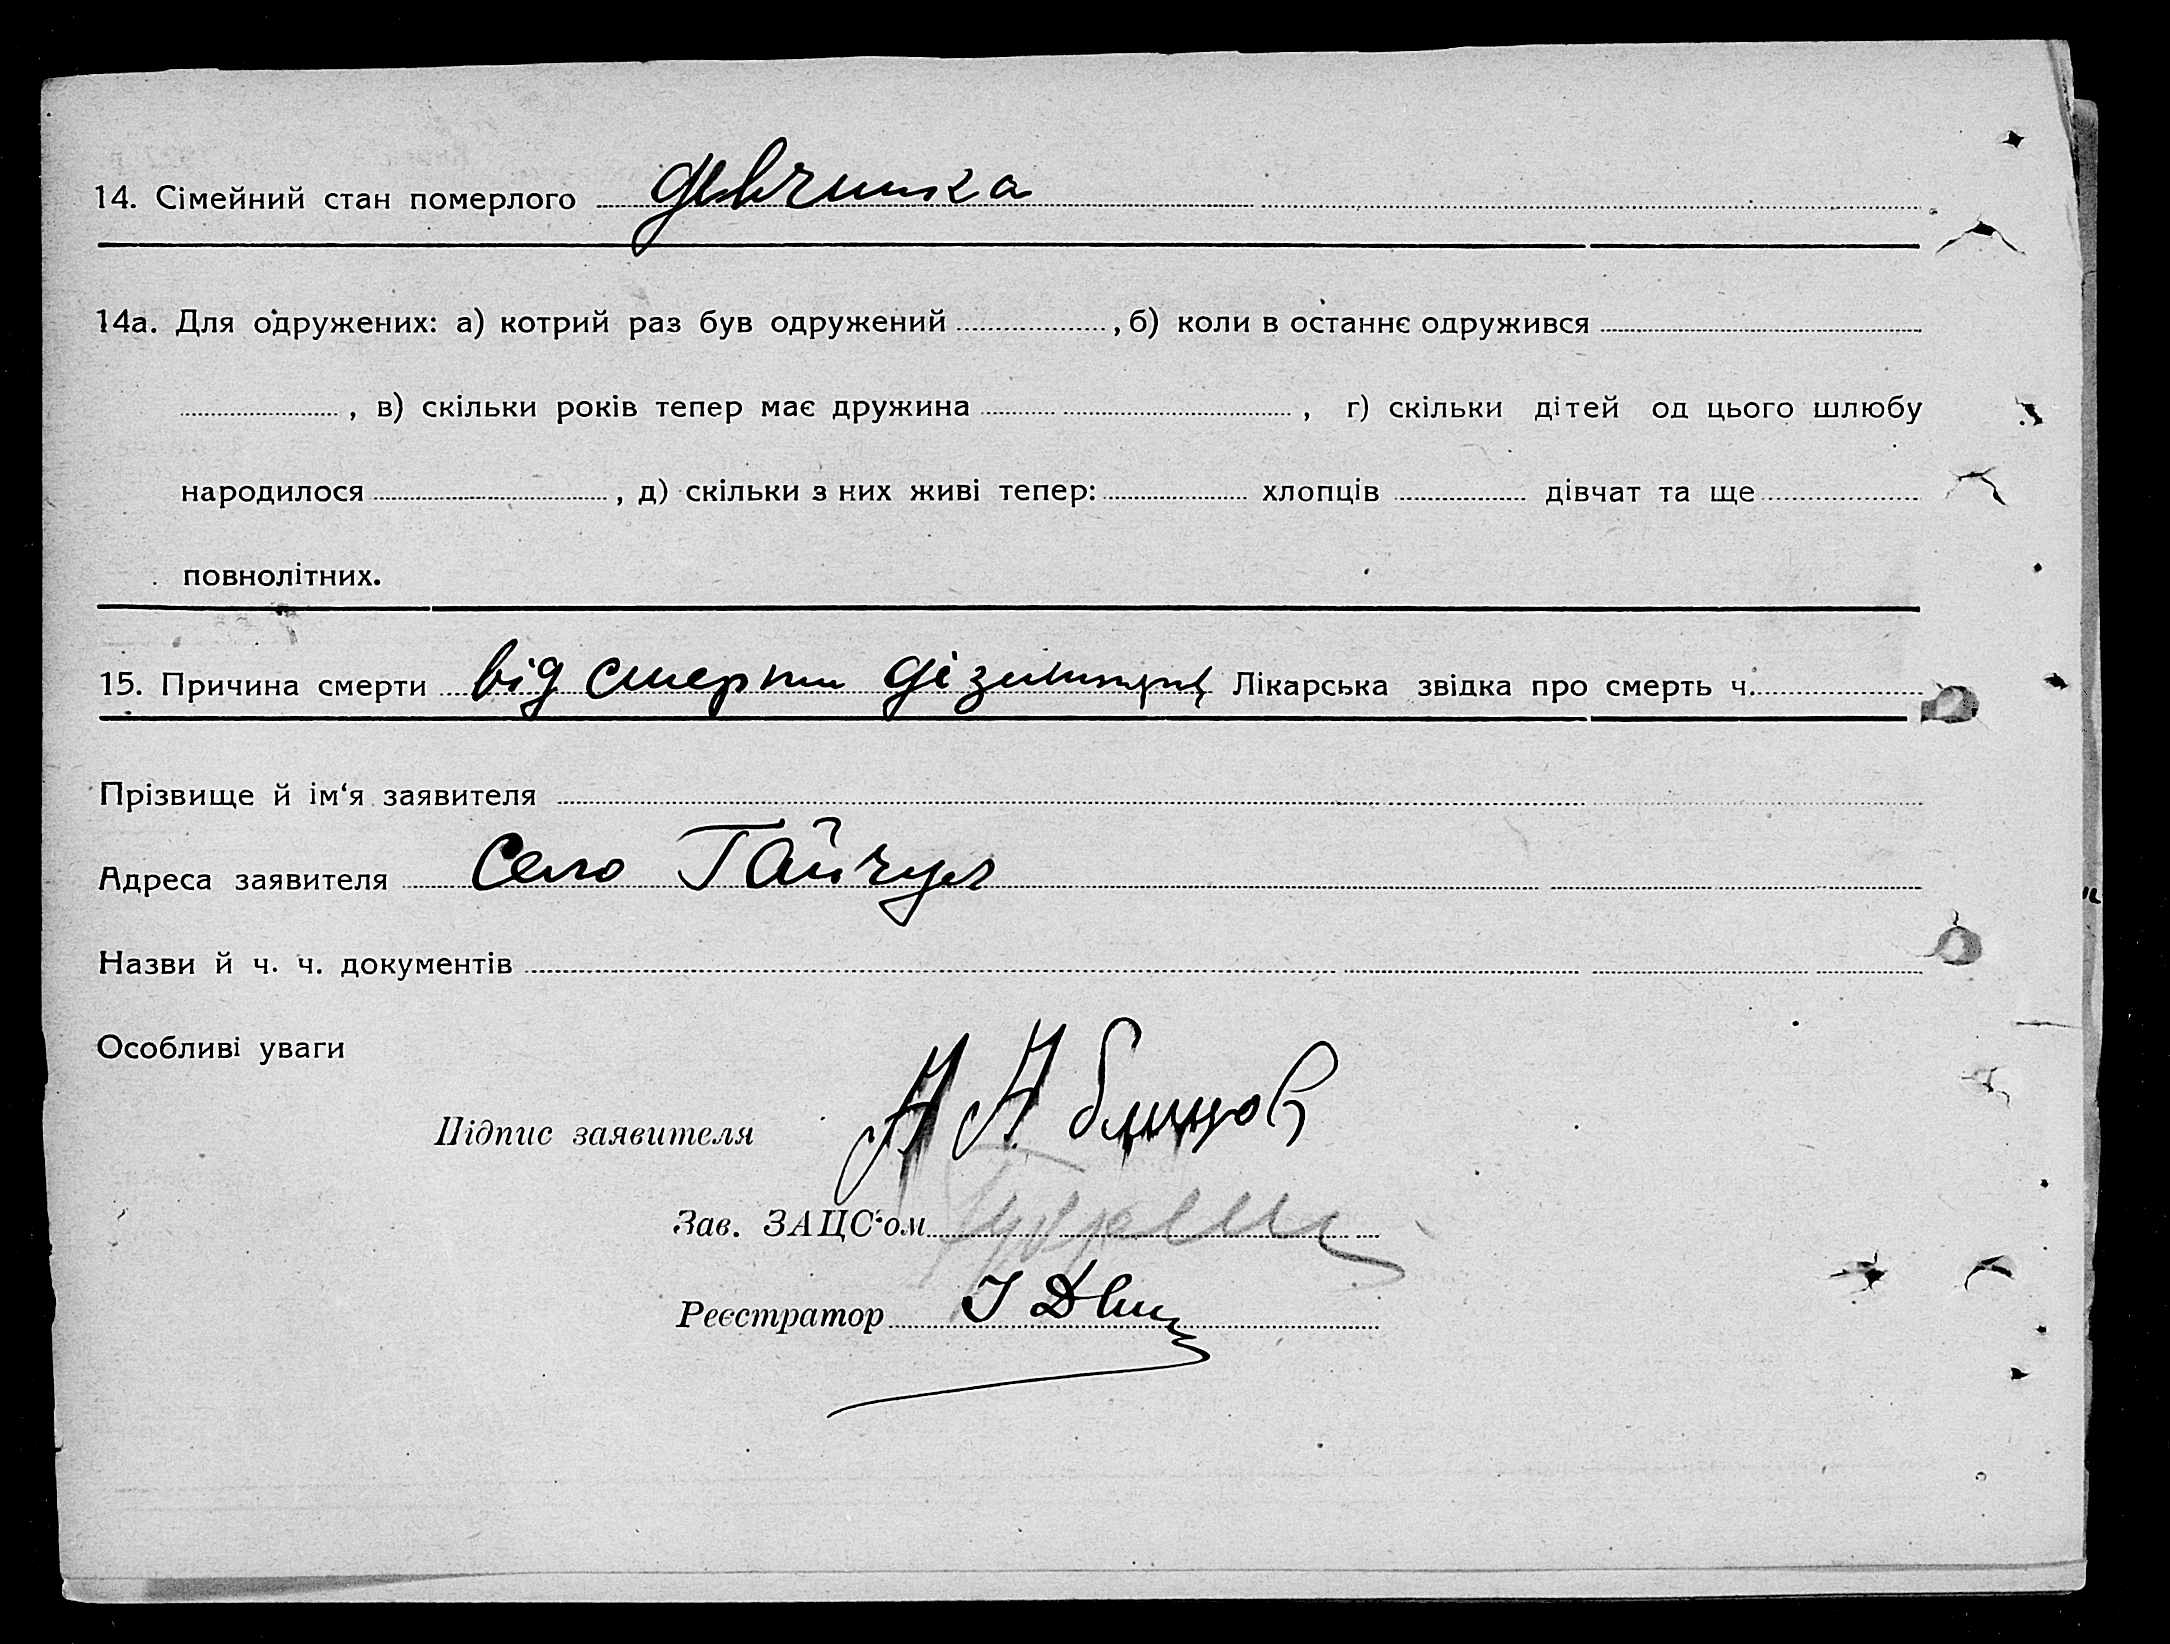 14. Сімейний стан померлого девчинка
14а. Для одружених: а) котрий раз був одружений , б) коли в останнє одружився
, в) скільки років тепер має дружина , г) скільки дітей од цього шлюбу
народилося , д) скільки з них живі тепер: хлопців дівчат та ще
повнолітних.
15. Причина смерти від смерти Лікарська звідка про смерть ч.
Прізвище й ім'я заявителя
Адреса заявителя Село Гайчул
Назви й ч. ч. документів
Особливі уваги
Підпис заявителя
Зав. ЗАЦС'ом
Реєстратор